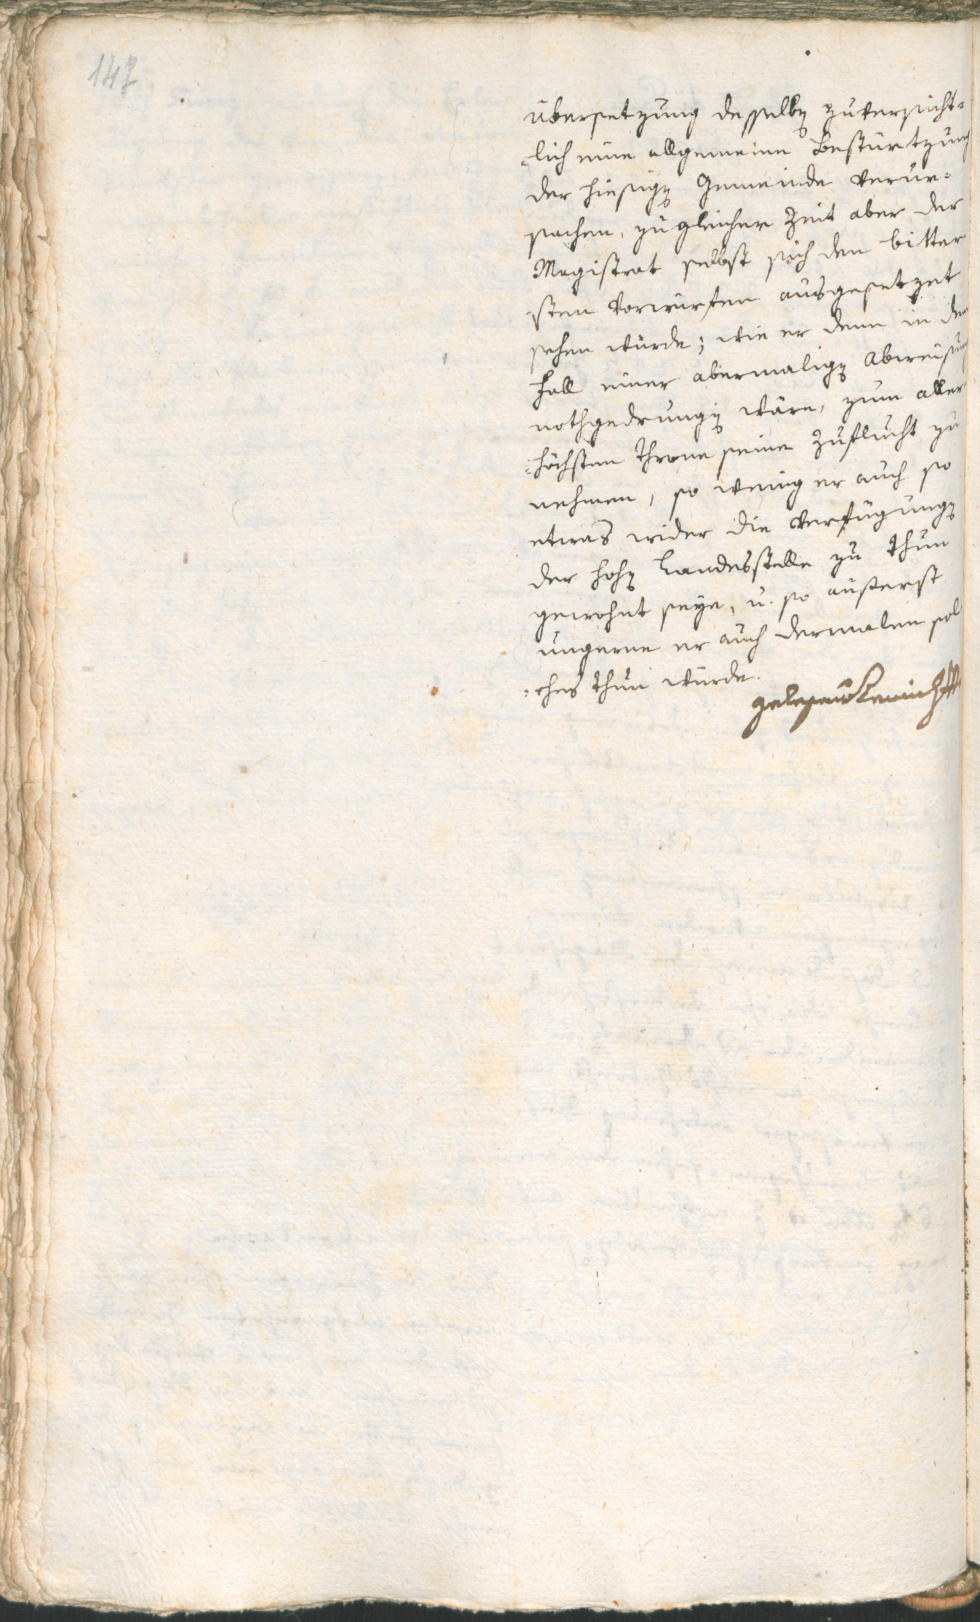 147
übersetzung desselben zuversicht-
lich eine allgemeine Bestürtzung
der hiesigen Gemeinde verur-
sachen, zu gleicher Zeit aber der
Magistrat selbst sich den bitter
sten Vorwürfen ausgesetzet
sehen würde; wie er denn in dem
Fall einer abermaligen Abweisung
nothgedrungen wäre, zum aller
höchsten Throne seine Zuflucht zu
nehmen, so wenig er auch so
etwas wider die Verfügungen
der hohen Landesstelle zu thun
gewohnt seye, u. so äußerst
ungerne er auch dermalen sol
ches thun würde.